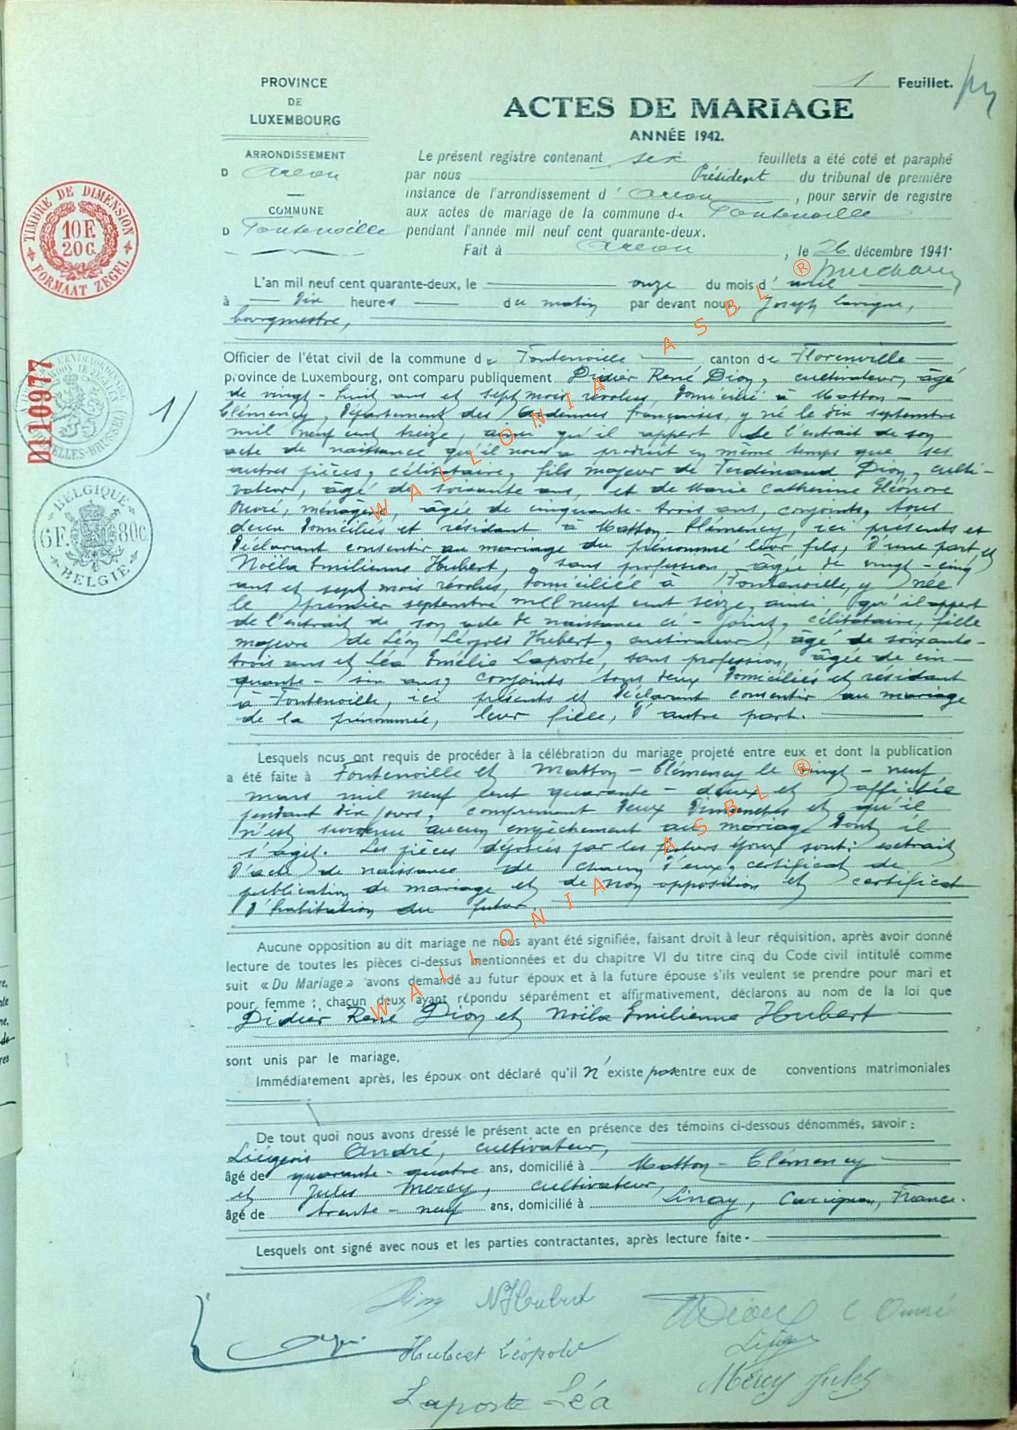 1 Feuillet.
PROVINCE
DE
LUXEMBOURG
ACTES DE MARIAGE
ANNÉE 1942.
ARRONDISSEMENT
D Arlon
COMMUNE
D Fontenoille
Le présent registre contenant six feuillets a été coté et paraphé
par nous Président du tribunal de première
instance de l'arrondissement d' Arlon, pour servir de registre
aux actes de mariage de la commune de Fontenoille
pendant l'année mil neuf cent quarante-deux.
Fait à Arlon, le 26 décembre 1941.
TIMBRE DE DIMENSION
10 F.
20 C.
FORMAAT ZEGEL
D110977
BELGIQUE
6 F. 80 C.
BELGIË
1/
L'an mil neuf cent quarante-deux, le onze du mois d' avril
à dix heures du matin par devant nous Joseph Lavigne,
bourgmestre,
Officier de l'état civil de la commune de Fontenoille canton de Florenville
province de Luxembourg, ont comparu publiquement Didier René Dion, cultivateur, âgé
de vingt-huit ans et sept mois révolus, domicilié à Matton-
Clémency, Département des Ardennes françaises, y né le dix septembre
mil neuf cent treize, ainsi qu'il appert de l'extrait de son
acte de naissance qu'il nous a produit en même temps que ses
autres pièces, célibataire, fils majeur de Ferdinand Dion, culti-
vateur, âgé de soixante ans, et de Marie Catherine Eléonore
ménagère, âgée de cinquante-trois ans, conjoints, tous
deux domiciliés et résidant à Matton Clémency, ici présents et
déclarant consentir au mariage du prénommé leur fils, d'une part, et
Noëla Emilienne Hubert, sans profession, âgée de vingt-cinq
ans et sept mois révolus, domiciliée à Fontenoille, y née
le premier septembre mil neuf cent seize, ainsi qu'il appert
de l'extrait de son acte de naissance ci-joint, célibataire, fille
majeure de Léon Léopold Hubert, cultivateur, âgé de soixante-
trois ans et Léa Emélie Laporte, sans profession, âgée de cin-
quante-six ans, conjoints tous deux domiciliés et résidant
à Fontenoille, ici présents et déclarant consentir au mariage
de la prénommée, leur fille, d'autre part.
Lesquels nous ont requis de procéder à la célébration du mariage projeté entre eux et dont la publication
a été faite à Fontenoille et Matton-Clémency le vingt-neuf
mars mil neuf cent quarante-deux et affichée
pendant dix jours, comprenant deux dimanches et qu'il
n'est survenu aucun empêchement au mariage dont il
s'agit. Les pièces déposées par les futurs époux sont: extrait
d'acte de naissance de chacun d'eux, certificat de
publication de mariage et de non opposition et certificat
d'habitation du futur.
Aucune opposition au dit mariage ne nous ayant été signifiée, faisant droit à leur réquisition, après avoir donné
lecture de toutes les pièces ci-dessus mentionnées et du chapitre VI du titre cinq du Code civil intitulé comme
suit « Du Mariage » avons demandé au futur époux et à la future épouse s'ils veulent se prendre pour mari et
pour femme ; chacun deux ayant répondu séparément et affirmativement, déclarons au nom de la loi que
Didier René Dion et Noëla Emilienne Hubert
sont unis par le mariage.
Immédiatement après, les époux ont déclaré qu'il n'existe pas entre eux de conventions matrimoniales
De tout quoi nous avons dressé le présent acte en présence des témoins ci-dessous dénommés, savoir :
Liégeois André, cultivateur,
âgé de quarante-quatre ans, domicilié à Matton-Clémency
et Jules Mercy, cultivateur,
âgé de trente-neuf ans, domicilié à Linay, Carignan, France.
Lesquels ont signé avec nous et les parties contractantes, après lecture faite.
Dion N Hubert
Hubert Léopold
Mercy Jules
Laporte Léa
WALLONIA ASBL ®
WALLONIA ASBL ®